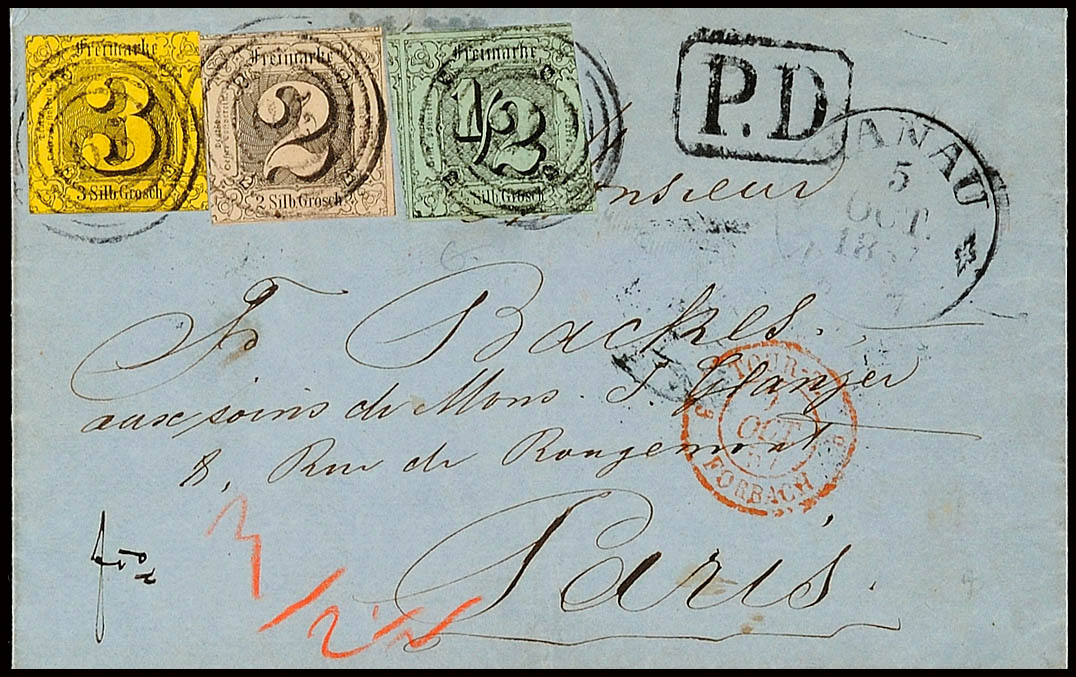 Freimarke
3
3 Silb Grosch
Freimarke
2
2 Silb Grosch
Freimarke
1/2
Silb. Grosch
P.D
ANAU
5
OCT.
Monsieur
Backes.
aux soins de Mons. J. Glanzer
8, Rue de Rougemont
Paris.
TOUR-T
OCT
FORBACH
3
3/2